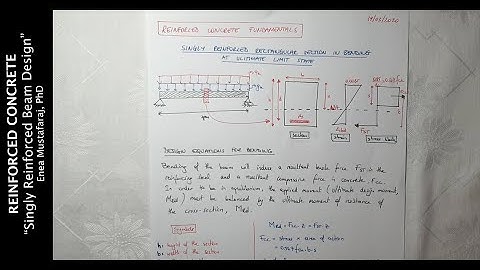 REINFORCED CONCRETE
"Singly Reinforced Beam Design"
Enea Mustafaraj, PhD
19/03/2020
REINFORCED CONCRETE FUNDAMENTALS
SINGLY REINFORCED RECTANGULAR SECTION IN BENDING
AT ULTIMATE LIMIT STATE
b
As
Section
Strain
Stress block
Fst
DESIGN EQUATIONS FOR BENDING
Bending of the beam will induce a resultant tensile force Fst in the
reinforcing steel and a resultant compressive force in concrete Fcc.
In order to be in equilibrium, the applied moment (ultimate design moment,
Med) must be balanced by the ultimate moment of resistance
of the cross-section, Med.
Symbols
h = height of the section
b = width of the section
Med = Fcc·z = Fst·z
Fcc = stress × area of action
= 0.567fck·b·s